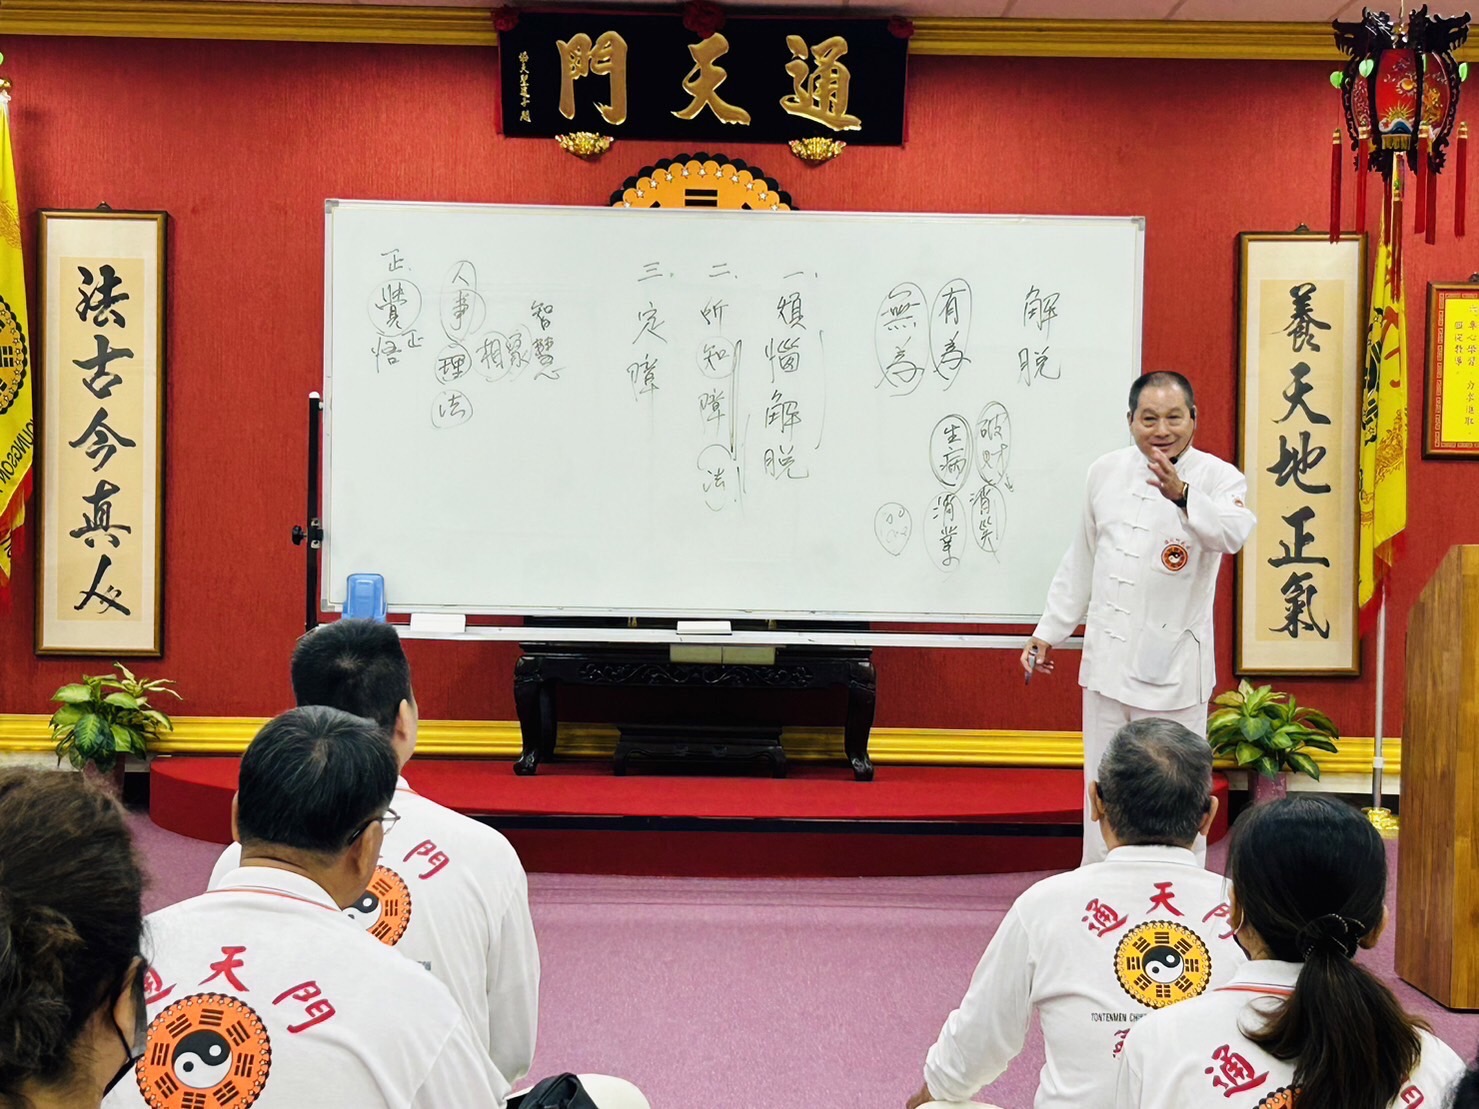 通天門
養天地正氣
法古今真人
解脫
有為
無為
破財消災
生病消業
一.煩惱解脫
二.所知障
法
三.定障
智慧
相
人事
理
法
正覺
正悟
通天門
通天門
通
門
TONTENMEN